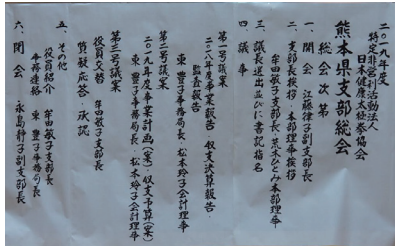 二〇一九年度
特定非営利活動法人
日本健康太極拳協会
熊本県支部総会
総会次第
一、開会 江藤律子副支部長
二、支部長挨拶・本部理事挨拶
牟田敏子支部長・荒木ひとみ本部理事
三、議長選出並びに書記指名
四、議事
第一号議案
二〇一八年度事業報告・収支決算報告・
監査報告
東豊子事務局長・松本玲子会計理事
第二号議案
二〇一九年度事業計画(案)・収支予算(案)
東豊子事務局長・松本玲子会計理事
第三号議案
役員交替 牟田敏子支部長
質疑応答・承認
五、その他
役員紹介 牟田敏子支部長
事務連絡 東豊子事務局長
六、閉会 永島静子副支部長